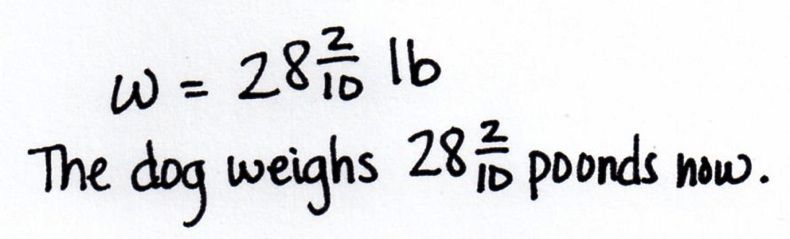 w = 28 2/10 lb
The dog weighs 28 2/10 poonds now.